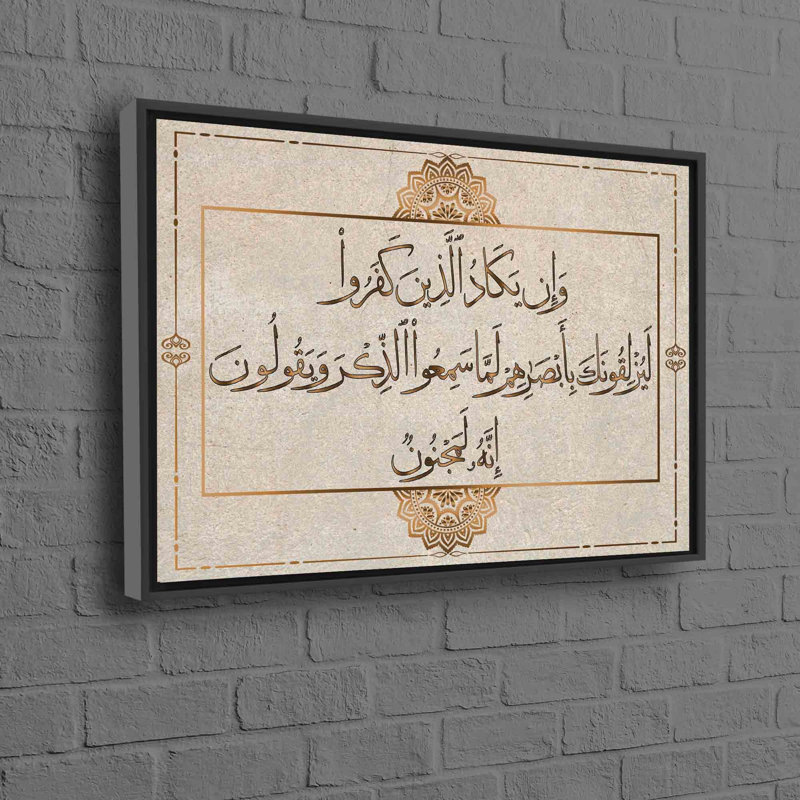 وَإِن يَكَادُ ٱلَّذِينَ كَفَرُوا۟
لَيُزْلِقُونَكَ بِأَبْصَـٰرِهِمْ لَمَّا سَمِعُوا۟ ٱلذِّكْرَ وَيَقُولُونَ
إِنَّهُۥ لَمَجْنُونٌ